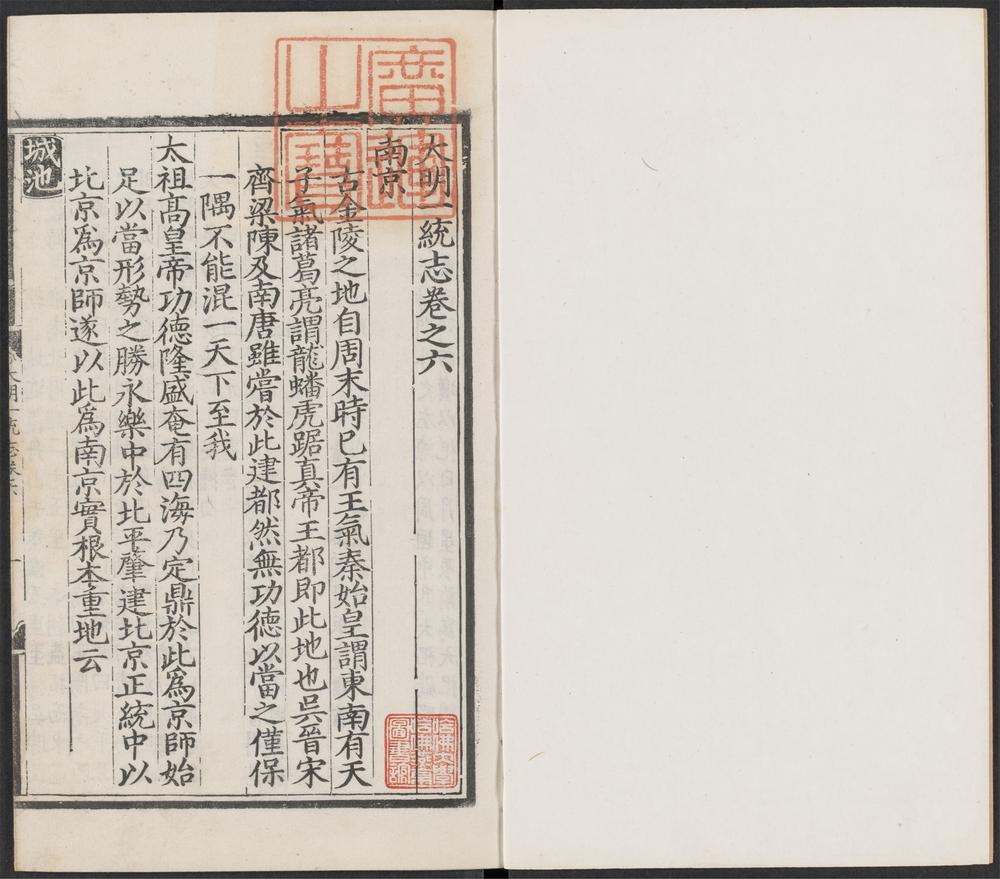 大明一統志卷之六
南京
古金陵之地自周末時已有王氣秦始皇謂東南有天
子氣諸葛亮謂龍蟠虎踞真帝王都即此地也吳晉宋
齊梁陳及南唐雖嘗於此建都然無功德以當之僅保
一隅不能混一天下至我
太祖高皇帝功德隆盛奄有四海乃定鼎於此爲京師始
足以當形勢之勝永樂中於北平肇建北京正統中以
北京爲京師遂以此爲南京實根本重地云
城池